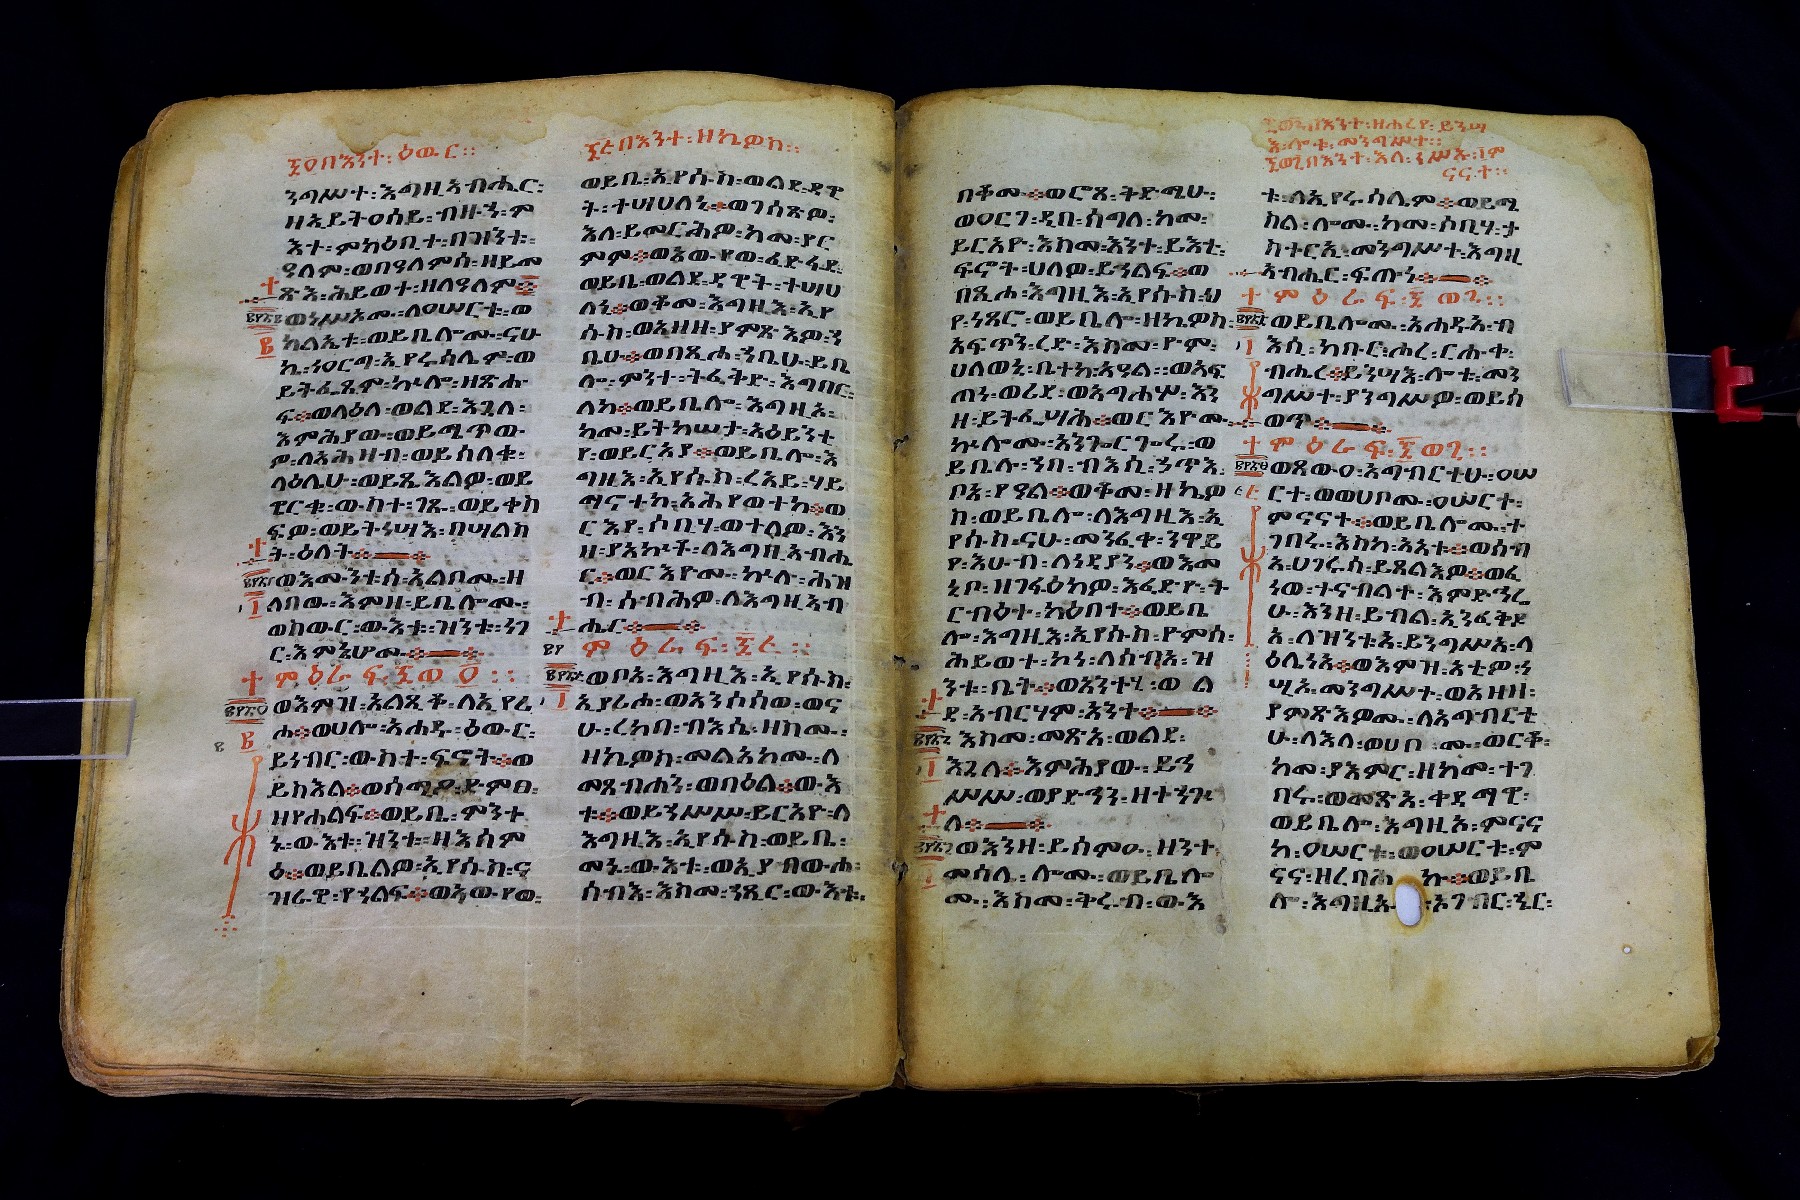 ፷፬በእንተ፡ዕዉር፡፡
ንግሥተ፡እግዚአብሔር፡
ዘአይትዐሰይ፡ብዙኀ፡ም
እተ፡ምክዕቢተ፡በዝንቱ፡
ዓለም፡ወበዓለምሰ፡ዘይመ
ጽእ፡ሕይወተ፡ዘለዓለም።
ወነሥኦሙ፡ለዐሠርቱ፡ወ
ክልኤቱ፡ወይቤሎሙ፡ናሁ
ኬ፡ነዐርግ፡ኢየሩሳሌም፡ወ
ይትፌጸም፡ኵሎ፡ዘጽሑ
ፍ፡ወላዕለ፡ወልደ፡እጓለ፡
እምሕያው፡ወይሜጥው
ዎ፡ለአሕዛብ፡ወይሳለቁ፡
ላዕሌሁ፡ወይጼእልዎ፡ወይ
ዌርቁ፡ውስተ፡ገጹ፡ወይቀስ
ፍዎ፡ወይትነሣእ፡በሣልስ
ት፡ዕለት።
ወእሙንቱሰ፡አልቦሙ፡ዘ
ለበው፡እምዘ፡ይቤሎሙ፡
ወክውር፡ውእቱ፡ዝንቱ፡ነገ
ር፡እምኔሆሙ።
ምዕራፍ፡፷ወ፬፡፡
ወእምዝ፡አልጺቆ፡ለኢያሪ
ሖ፡ወሀሎ፡አሐዱ፡ዕውር፡
ይነብር፡ውስተ፡ፍኖት፡ወ
ይስእል፡ወሰሚዖ፡ድምፀ፡
ዘየሐልፍ፡ወይቤ፡ምንተ
ኑ፡ውእቱ፡ዝንቱ፡ዘእሰም
ዕ፡ወይቤልዎ፡ኢየሱስ፡ና
ዝራዊ፡የኀልፍ፡ወአውየወ፡
፷፭በእንተ፡ዘኬዎስ፡፡
ወይቤ፡ኢየሱስ፡ወልደ፡ዳዊ
ት፡ተሣሀለኒ፡ወገሰጽዎ፡
እለ፡ይመርሕዎ፡ከመ፡ያር
ምም፡ወአውየወ፡ፈድፋደ፡
ወይቤ፡ወልደ፡ዳዊት፡ተሣሀ
ለኒ፡ወቆመ፡እግዚእ፡ኢየ
ሱስ፡ወአዘዘ፡ያምጽእዎ፡ኀ
ቤሁ፡ወበጺሖ፡ኀቤሁ፡ይቤ
ሎ፡ምንተ፡ትፈቅድ፡እግበር፡
ለከ፡ወይቤሎ፡እግዚኦ፡
ከመ፡ይትከሠታ፡አዕይንት
የ፡ወይርአያ፡ወይቤሎ፡እ
ግዚእ፡ኢየሱስ፡ረአይ፡ሃይ
ማኖተከ፡አሕየወተከ፡ወ
ርእየ፡ሶቤሃ፡ወተለዎ፡እን
ዘ፡ያአኵቶ፡ለእግዚአብሔ
ር፡ወርእዮሙ፡ኵሉ፡ሕዝ
ብ፡ሰብሕዎ፡ለእግዚአብ
ሔር።
ምዕራፍ፡፷፭፡፡
ወቦአ፡እግዚእ፡ኢየሱስ፡
ኢያሪሖ፡ወአንሶሰወ፡ወና
ሁ፡ረከበ፡ብእሴ፡ዘስሙ፡
ዘኬዎስ፡መልአኮሙ፡ለ
መጸብሐን፡ወበዕል፡ውእ
ቱ፡ወይኀሥሥ፡ይርአዮ፡ለ
እግዚእ፡ኢየሱስ፡ወይቤ፡
መኑ፡ውእቱ፡ወኢያብውሖ፡
ሰብእ፡እስመ፡ኀጺር፡ውእቱ፡
በቆሙ፡ወሮጸ፡ቅድሜሁ፡
ወዐርገ፡ዲበ፡ሰግላ፡ከመ፡
ይርአዮ፡እስመ፡እንተ፡ይእቲ፡
ፍኖት፡ሀለዎ፡ይኅልፍ፡ወ
በጺሖ፡እግዚእ፡ኢየሱስ፡ህ
የ፡ነጸሮ፡ወይቤሎ፡ዘኬዎስ፡
አፍጥን፡ረድ፡እስመ፡ዮም፡
ሀለወኒ፡ቤተከ፡አዓል፡ወአፍ
ጠነ፡ወሪደ፡ወአግሐሦ፡እን
ዘ፡ይትፌሣሕ፡ወርእዮሙ፡
ኵሎሙ፡አንጐርጐሩ፡ወ
ይቤሉ፡ኀበ፡ብእሲ፡ኃጥእ፡
ቦአ፡የዓል፡ወቆመ፡ዘኬዎ
ስ፡ወይቤሎ፡ለእግዚእ፡ኢ
የሱስ፡ናሁ፡መንፈቀ፡ንዋይ
የ፡እሁብ፡ለነዳያን፡ወእመ
ኒቦ፡ዘገፋዕክዎ፡እፈድዮ፡ት
ርብዕተ፡ካዕበተ፡ወይቤ
ሎ፡እግዚእ፡ኢየሱስ፡ዮምሰ፡
ሕይወተ፡ኮነ፡ለሰብአ፡ዝ
ንቱ፡ቤት፡ወአንተሂ፡ወል
ደ፡አብርሃም፡አንተ።
እስመ፡መጽአ፡ወልደ፡
እጓለ፡እምሕያው፡ይኅ
ሥሥ፡ወያድኅን፡ዘተኀጕ
ለ።
ወእንዘ፡ይሰምዑ፡ዘንተ፡
መሰለ፡ሎሙ፡ወይቤሎ
ሙ፡እስመ፡ቅሩብ፡ውእ
እሎቱ፡መንግሥተ፡፡
ቱ፡ለኢየሩሳሌም፡ወይሜ
ስል፡ሎሙ፡ከመ፡ሶቤሃ፡ታ
ስተርኢ፡መንግሥተ፡እግዚ
አብሔር፡ፍጡነ።
ምዕራፍ፡፷ወ፮፡፡
ወይቤሎሙ፡አሐዱ፡ብ
እሲ፡ክቡር፡ሖረ፡ርሑቀ፡
ብሔረ፡ይንሣእ፡ሎቱ፡መን
ግሥተ፡ያንግሥዎ፡ወይሰ
ወጥ።
ምዕራፍ፡፷ወ፯፡፡
ወጸውዐ፡አግብርቲሁ፡ዐሠ
ርተ፡ወወሀቦሙ፡ዐሠርተ፡
ምናናተ፡ወይቤሎሙ፡ተ
ገበሩ፡እስከ፡አአቱ፡ወሰብ
አ፡ሀገሩሰ፡ይጸልእዎ፡ወፈ
ነው፡ተናብልተ፡እምድኅሬ
ሁ፡እንዘ፡ይብል፡ኢንፈቅድ
አ፡ለዝንቱ፡አ፡ይንግሥአ፡ላ
ዕሌነአ፡ወእምዝ፡አቲዎ፡ነ
ሢኦ፡መንግሥተ፡ወአዘዘ፡
ያምጽእዎሙ፡ለአግብርቲ
ሁ፡ለእለ፡ወሀበሙ፡ወርቆ፡
ከመ፡ያእምር፡ዘከመ፡ተገ
በሩ፡ወመጽአ፡ቀዳማዊ፡
ወይቤሎ፡እግዚኦ፡ምናና
ከ፡ዐሠርተ፡ወዐሠርተ፡ም
ናና፡ዘረባሕኩ፡ወይቤ
ሎ፡እግዚኡ፡ኦገብር፡ኄር፡